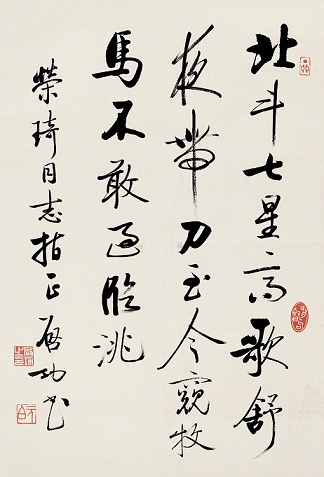 北斗七星高歌舒
夜帶刀至今窺牧
馬不敢過臨洮
榮琦同志指正启功书